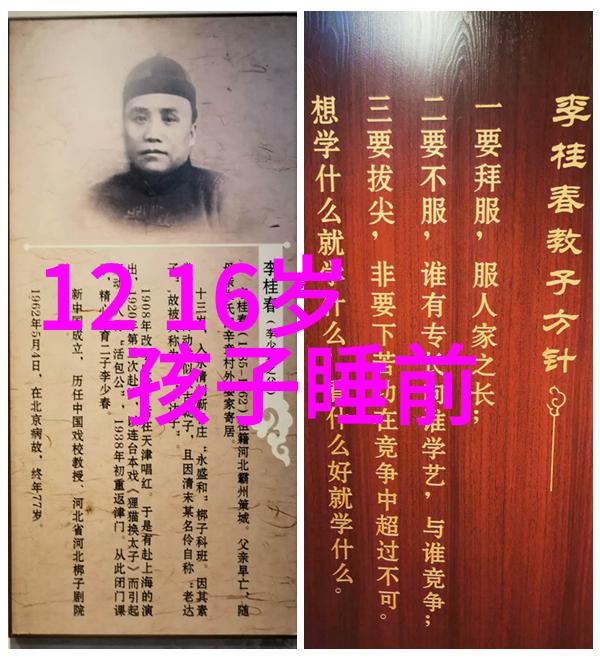 12 16岁
孩子睡前
李桂春（李少
桂春（ 5-1962）祖籍河北霸州策城。父亲早亡，随
氏，辛章村外婆家寄居。
十三岁入永清 靳庄“永盛和”梆子科班。因其素
动似 子，且因清末某名伶自称“老达
子”故被 称为 达子”。
1908年改 在天津唱红。于是有赴上海的演
出，1920年第 次赴 连台本戏《狸猫换太子》而引起
动，人 “活包公”，1938年初重返津门。从此闭门课
，精心 育二子李少春。
新中国成立，历任中国戏校教授、河北省河北梆子剧院
1962年5月4日，在北京病故，终年77岁。
李桂春教子方针
一要拜服，服人家之长；
二要不服，谁有专长向谁学艺，与谁竞争；
三要拔尖，非要下苦功在竞争中超过不可。
想学什么就学什么，有什么好就学什么。